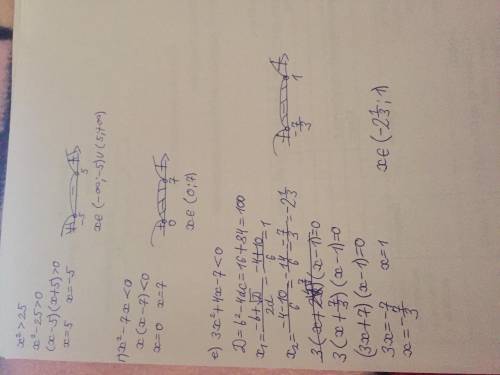 x²>25
x²-25>0
(x-5)(x+5)>0
x=5 x=-5
-5 5
x∈(-∞;-5)∪(5;+∞)
г) x²-7x<0
x(x-7)<0
x=0 x=7
0 7
x∈(0;7)
е) 3x²+4x-7<0
D=b²-4ac=16+84=100
x₁=-b+√D/2a=-4+10/6=6/6=1
x₂=-4-10/6=-14/6=-7/3=-2 1/3
(x-1)=0
3(x+7/3)(x-1)=0
(3x+7)(x-1)=0
3x=-7 x=1
x=-7/3
-7/3 1
x∈(-2 1/3;1)